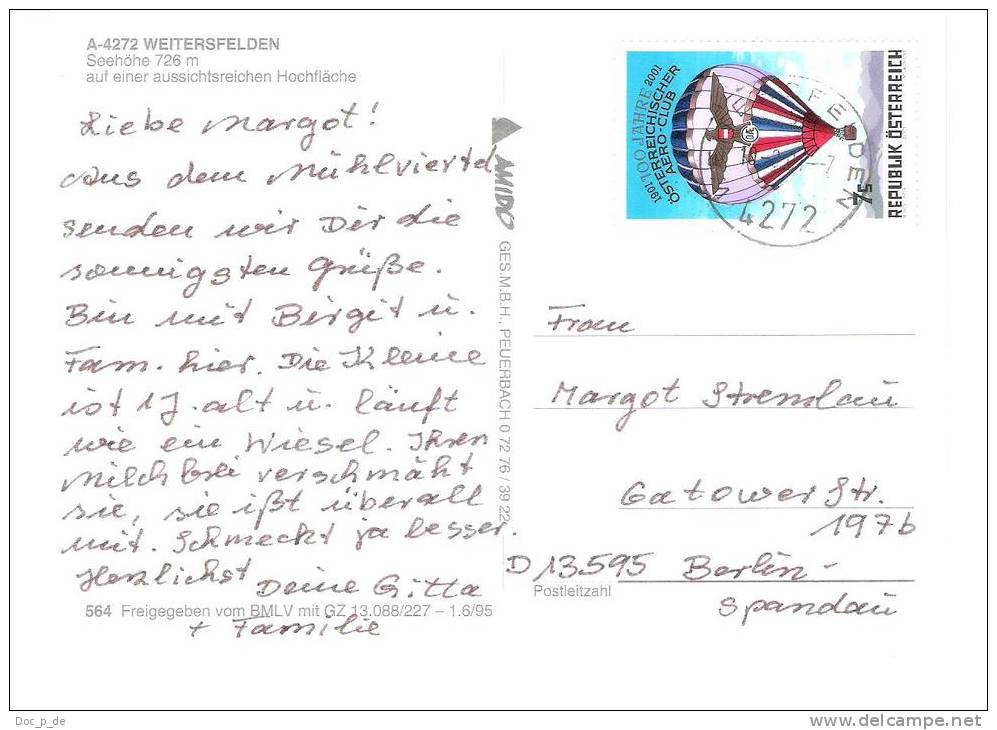 A-4272 WEITERSFELDEN
Seehöhe 726 m
auf einer aussichtsreichen Hochfläche
Liebe Margot!
Aus dem Mühlviertel
senden wir Dir die
sonnigsten Grüße.
Bin mit Birgit u.
Fam. hier. Die Kleine
ist 1 J. alt u. läuft
wie ein Wiesel. Ihren
Milchbrei verschmäht
sie, sie ißt überall
mit. Schmeckt ja besser.
Herzlichst
Deine Gitta
+ Familie
564 Freigegeben vom BMLV mit GZ 13.088/227 – 1.6/95
AMIDO
GES.M.B.H., PEUERBACH 0 72 76 / 39 22
1901 100 JAHRE 2001
ÖSTERREICHISCHER
AERO-CLUB
7S
REPUBLIK ÖSTERREICH
4272
Frau
Margot Stremlau
Gatower Str.
197b
D 13595 Berlin-
Postleitzahl
Spandau
Doc_p_de
www.delcampe.net